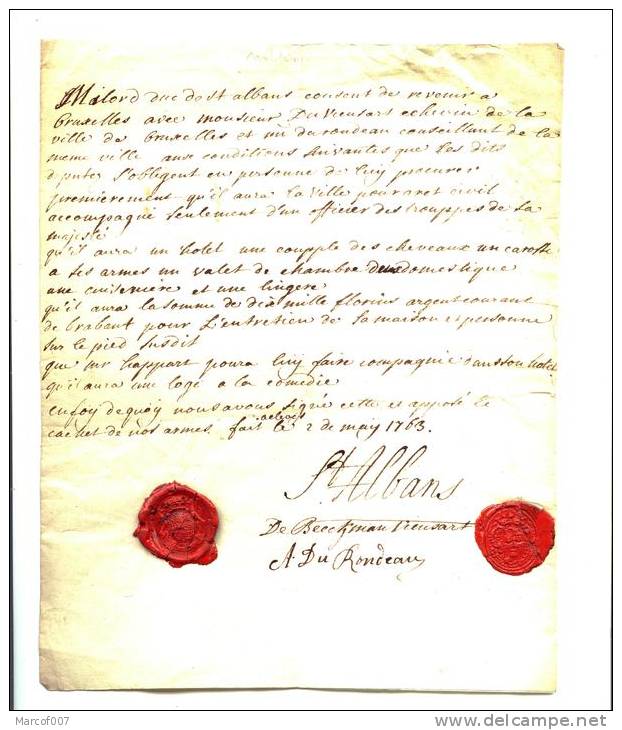 Milord duc de st albans consent de revenir a
bruxelles avec monsieur Du Vieusart echevin de la
ville de bruxelles et mr du rondeau conseillant de la
meme ville aux conditions suivantes que les dits
s'obligent en personne de luy procurer
premierement qu'il aura la ville pour aret civil
accompagné seulement d'un officier des trouppes de sa
majesté
qu'il aura un hotel une coupple des chevaux un carosse
a ses armes un valet de chambre deux domestique
une cuiseniere et une lingere
qu'il aura la somme de dix mille florins argent courant
de brabant pour l'entretien de sa maison et personne
sur le pied susdit
que mr happart poura luy faire compagnie dans son hotel
qu'il aura une loge a la comedie
en foy de quoy nous avons signé cette et apposé le
cachet de nos armes. fait le 2 de may 1763.
St Albans
De Beeckman Vieusart
A. Du Rondeau
Marcof007
www.delcampe.net